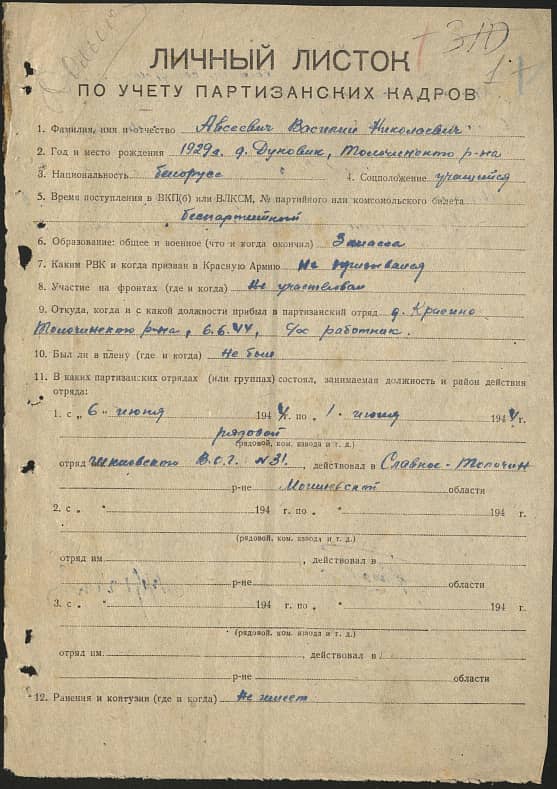 ЛИЧНЫЙ ЛИСТОК
ПО УЧЕТУ ПАРТИЗАНСКИХ КАДРОВ
1. Фамилия, имя и отчество Авсеевич Василий Николаевич
2. Год и место рождения 1929г. д. Дуковик, Толочинского р-на
3. Национальность белорусс 4. Соцположение учащийся
5. Время поступления в ВКП(б) или ВЛКСМ, № партийного или комсомольского билета
беспартийный
6. Образование: общее и военное (что и когда окончил) 3 класса
7. Каким РВК и когда призван в Красную Армию Не призывался
8. Участие на фронтах (где и когда) Не участвовал
9. Откуда, когда и с какой должности прибыл в партизанский отряд д. Красино
Толочинского р-на, 6.6.44, с/х работник.
10. Был ли в плену (где и когда) Не был
11. В каких партизанских отрядах (или группах) состоял, занимаемая должность и район действия
отряда:
1. с „ 6 " июня 194 4 г. по „ 1 " июля 194 4 г.
рядовой
(рядовой, ком. взвода и т. д.)
отряд Шкловского В.О.Г. №31. , действовал в Славное-Толочин
р-не Могилевской области
2. с „ " 194 г. по „ " 194 г.
(рядовой, ком. взвода и т. д.)
отряд им. , действовал в
р-не области
3. с „ " 194 г. по „ " 194 г.
(рядовой, ком. взвода и т. д.)
отряд им. , действовал в
р-не области
12. Ранения и контузии (где и когда) Не имеет